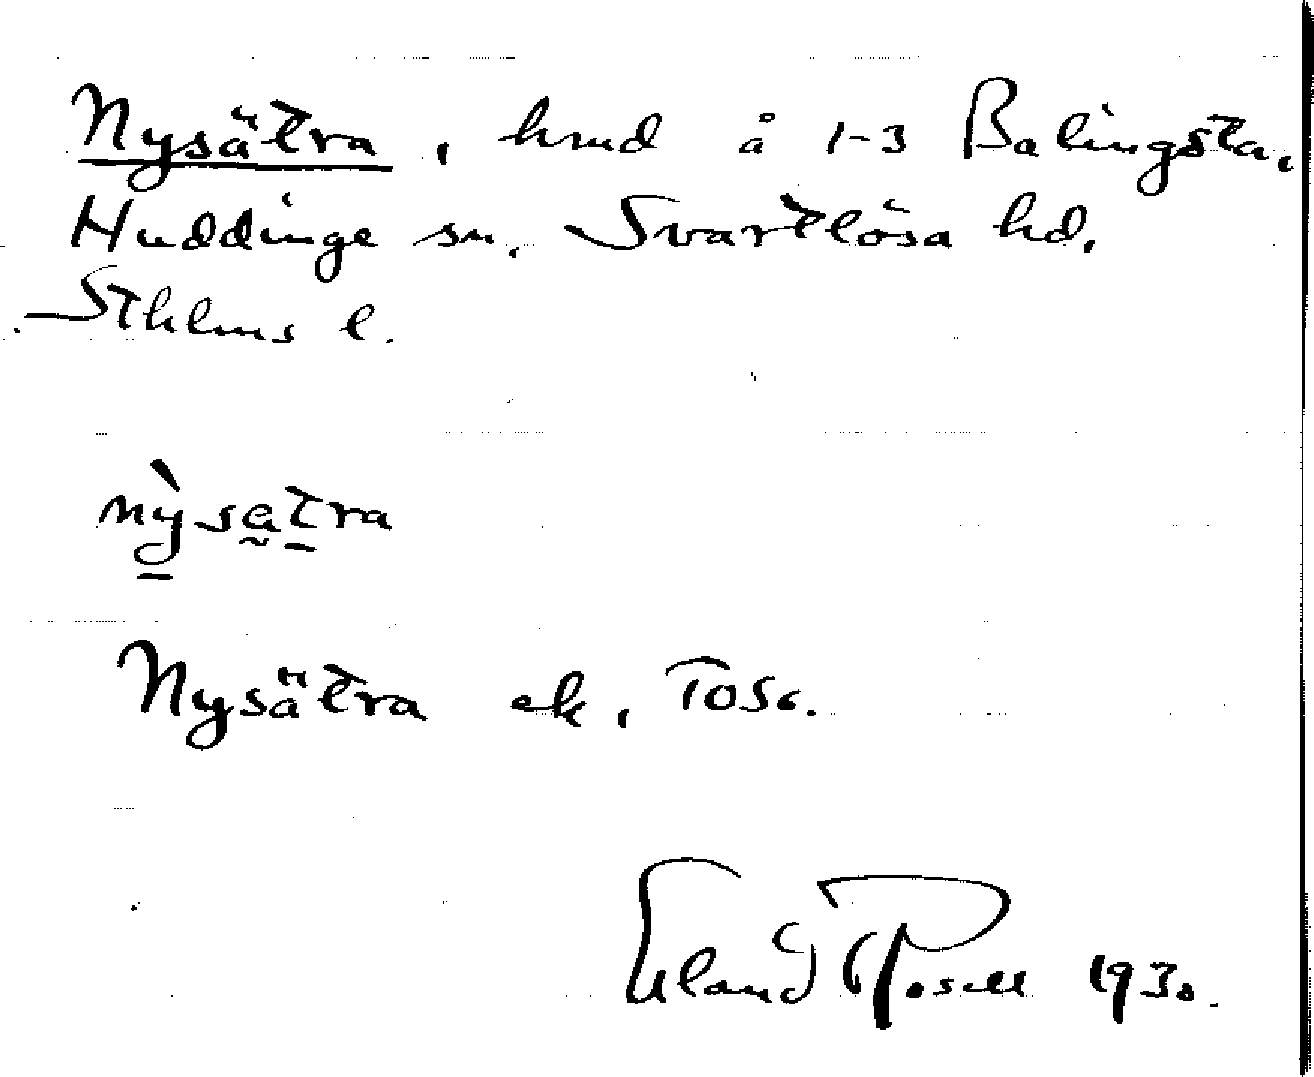 Nysätra, hmd å 1-3 Balingsta,
Huddinge sn, Svartlösa hd,
Sthlms l.
nỳsatra
Nysätra ek, Tosc.
Erland Rosell 1930.